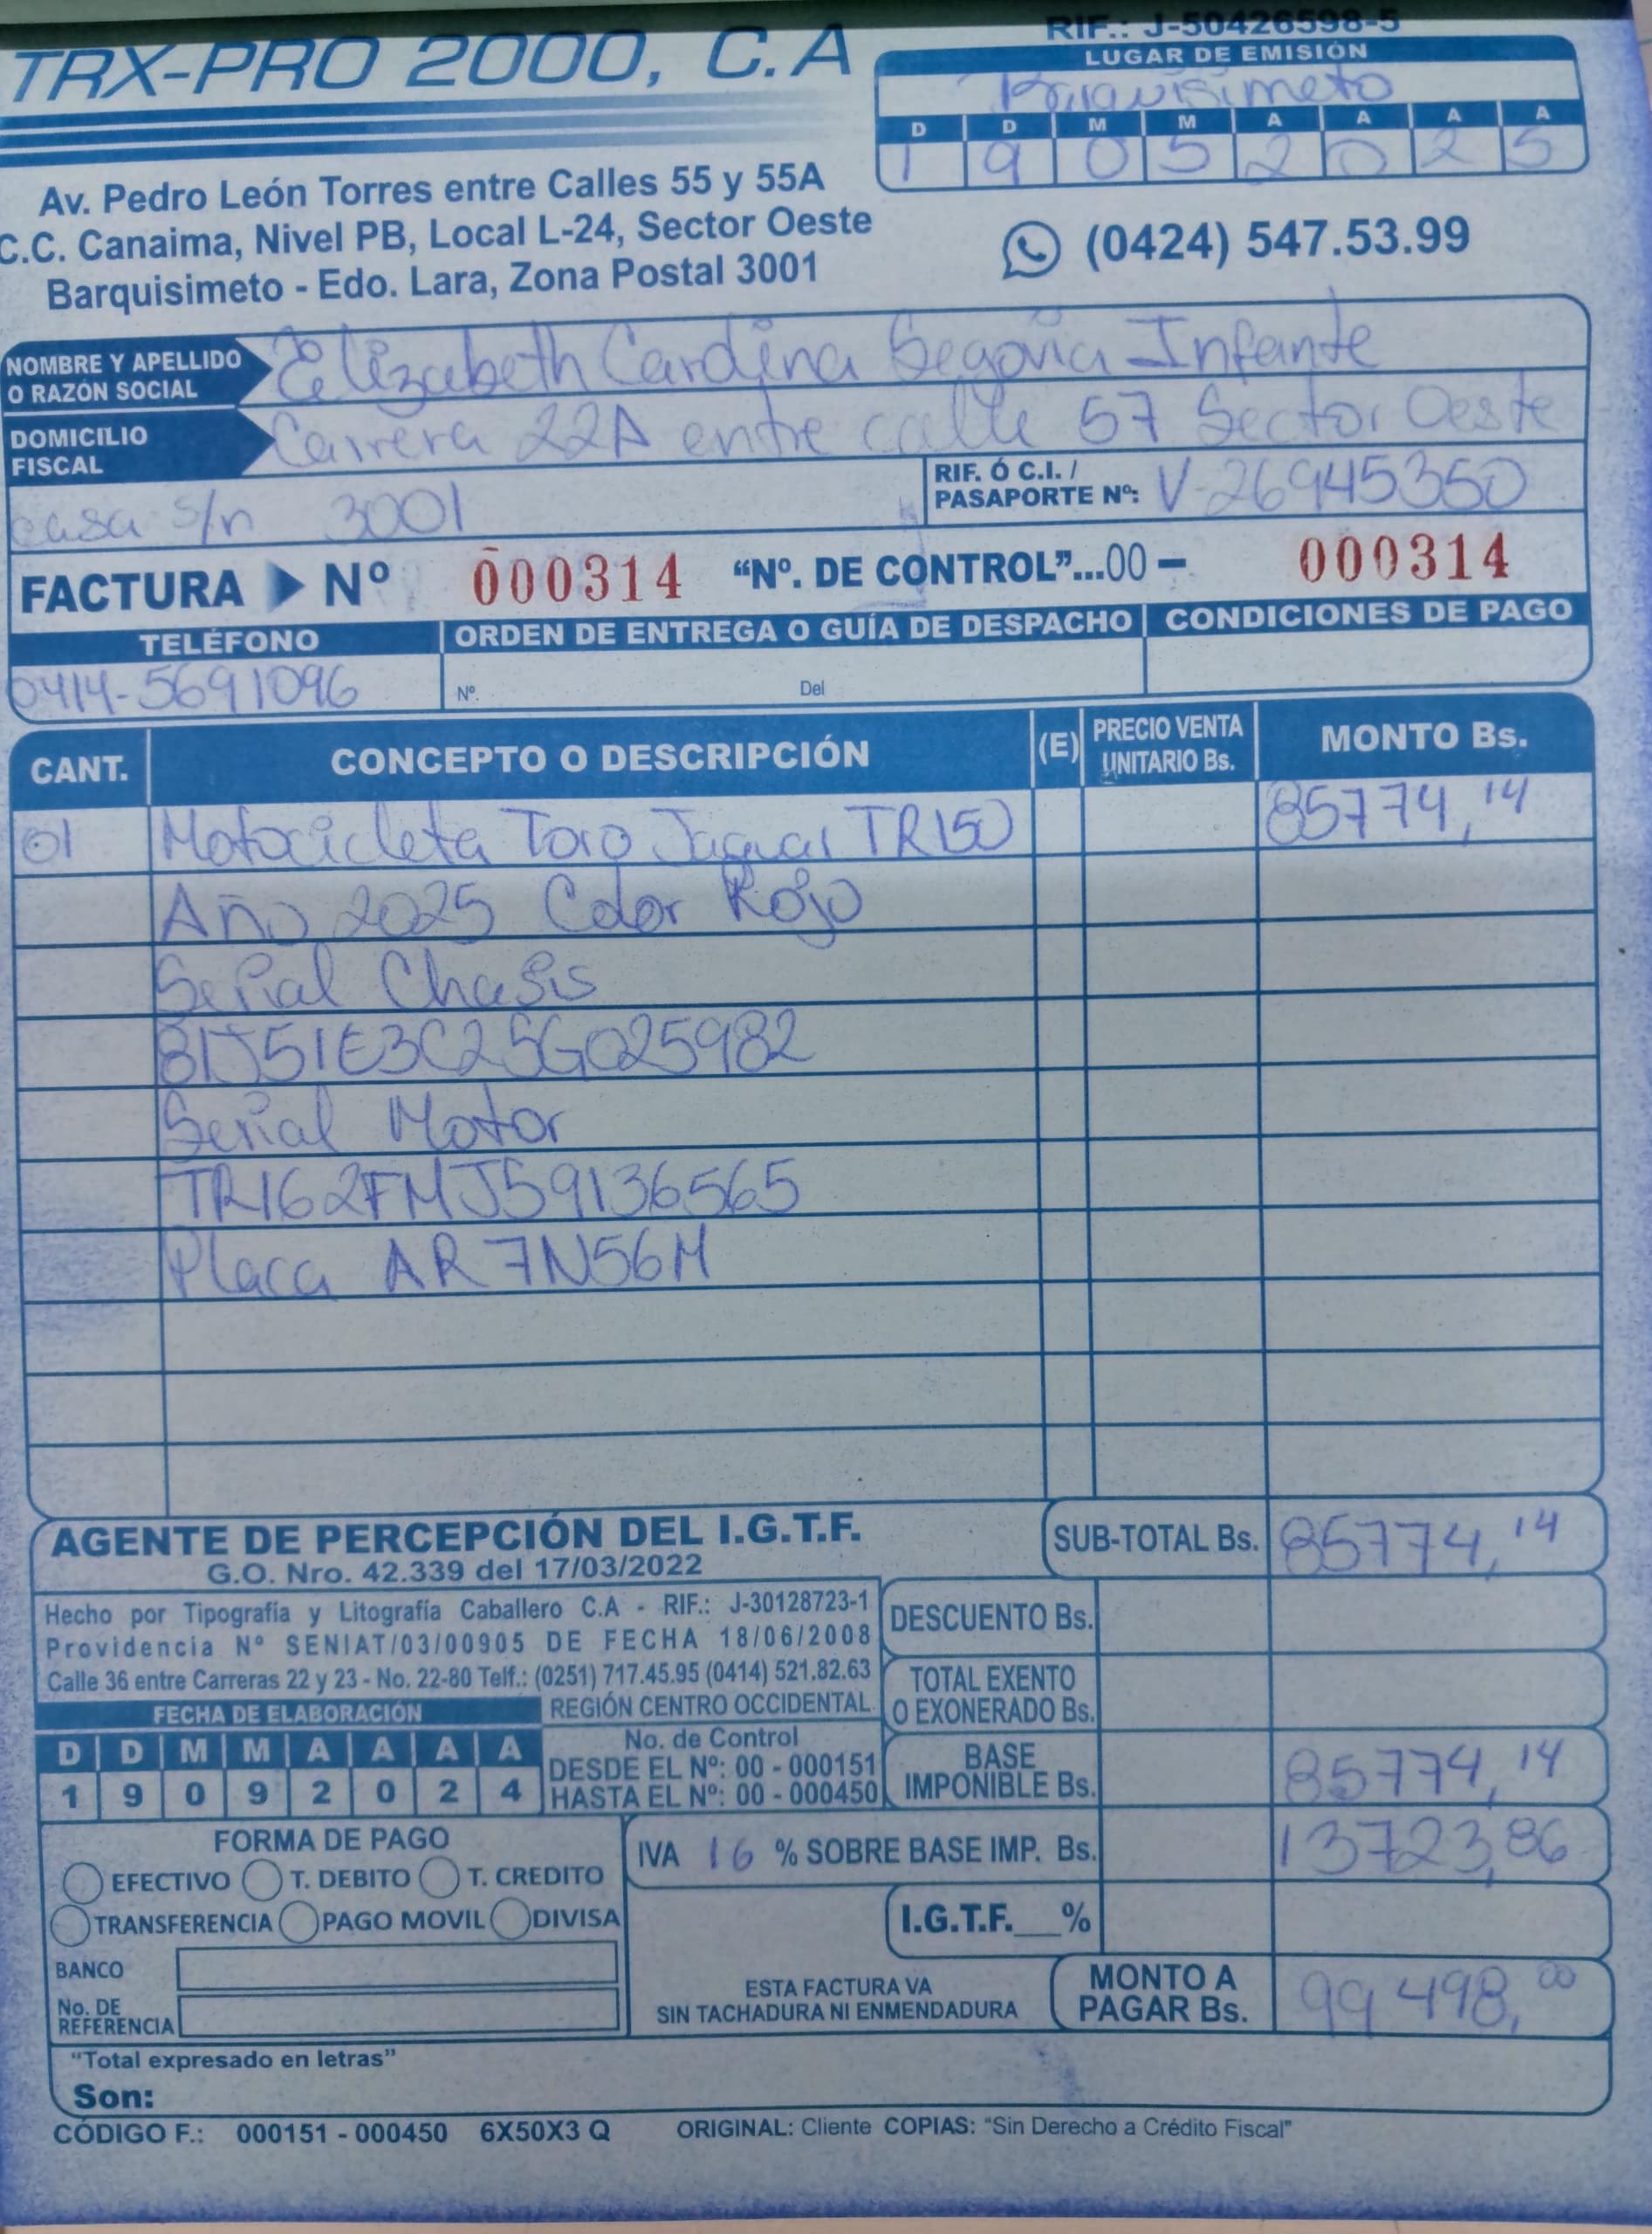 TRX-PRO 2000, C.A
RIF.: J-50426598-5
LUGAR DE EMISIÓN
Barquisimeto
D D M M A A A A
1 9 0 5 2 0 2 5
Av. Pedro León Torres entre Calles 55 y 55A
C.C. Canaima, Nivel PB, Local L-24, Sector Oeste
Barquisimeto - Edo. Lara, Zona Postal 3001
(0424) 547.53.99
NOMBRE Y APELLIDO
O RAZÓN SOCIAL
Elizabeth Cardina Segovia Infante
DOMICILIO
FISCAL
Carrera 22A entre calle 57 Sector Oeste
casa s/n 3001
RIF. Ó C.I. /
PASAPORTE Nº: V-26945350
FACTURA Nº 000314 “Nº. DE CONTROL”...00 – 000314
TELÉFONO ORDEN DE ENTREGA O GUÍA DE DESPACHO CONDICIONES DE PAGO
0414-5691096 Nº. Del
CANT. CONCEPTO O DESCRIPCIÓN (E) PRECIO VENTA UNITARIO Bs. MONTO Bs.
01 Motocicleta Toro Jaguar TR150 85774,14
Año 2025 Color Rojo
Serial Chasis
81J51E3C25G025982
Serial Motor
TR162FMJ59136565
Placa AR7N56M
AGENTE DE PERCEPCIÓN DEL I.G.T.F.
G.O. Nro. 42.339 del 17/03/2022
SUB-TOTAL Bs. 85774,14
Hecho por Tipografía y Litografía Caballero C.A - RIF.: J-30128723-1
Providencia Nº SENIAT/03/00905 DE FECHA 18/06/2008
Calle 36 entre Carreras 22 y 23 - No. 22-80 Telf.: (0251) 717.45.95 (0414) 521.82.63
DESCUENTO Bs.
TOTAL EXENTO
O EXONERADO Bs.
FECHA DE ELABORACIÓN
REGIÓN CENTRO OCCIDENTAL
D D M M A A A A
1 9 0 9 2 0 2 4
No. de Control
DESDE EL Nº: 00 - 000151
HASTA EL Nº: 00 - 000450
BASE
IMPONIBLE Bs. 85774,14
FORMA DE PAGO
EFECTIVO T. DEBITO T. CREDITO
TRANSFERENCIA PAGO MOVIL DIVISA
IVA 16 % SOBRE BASE IMP. Bs. 13723,86
I.G.T.F.__%
BANCO
No. DE
REFERENCIA
ESTA FACTURA VA
SIN TACHADURA NI ENMENDADURA
MONTO A
PAGAR Bs. 99498,00
“Total expresado en letras”
Son:
CÓDIGO F.: 000151 - 000450 6X50X3 Q ORIGINAL: Cliente COPIAS: “Sin Derecho a Crédito Fiscal”